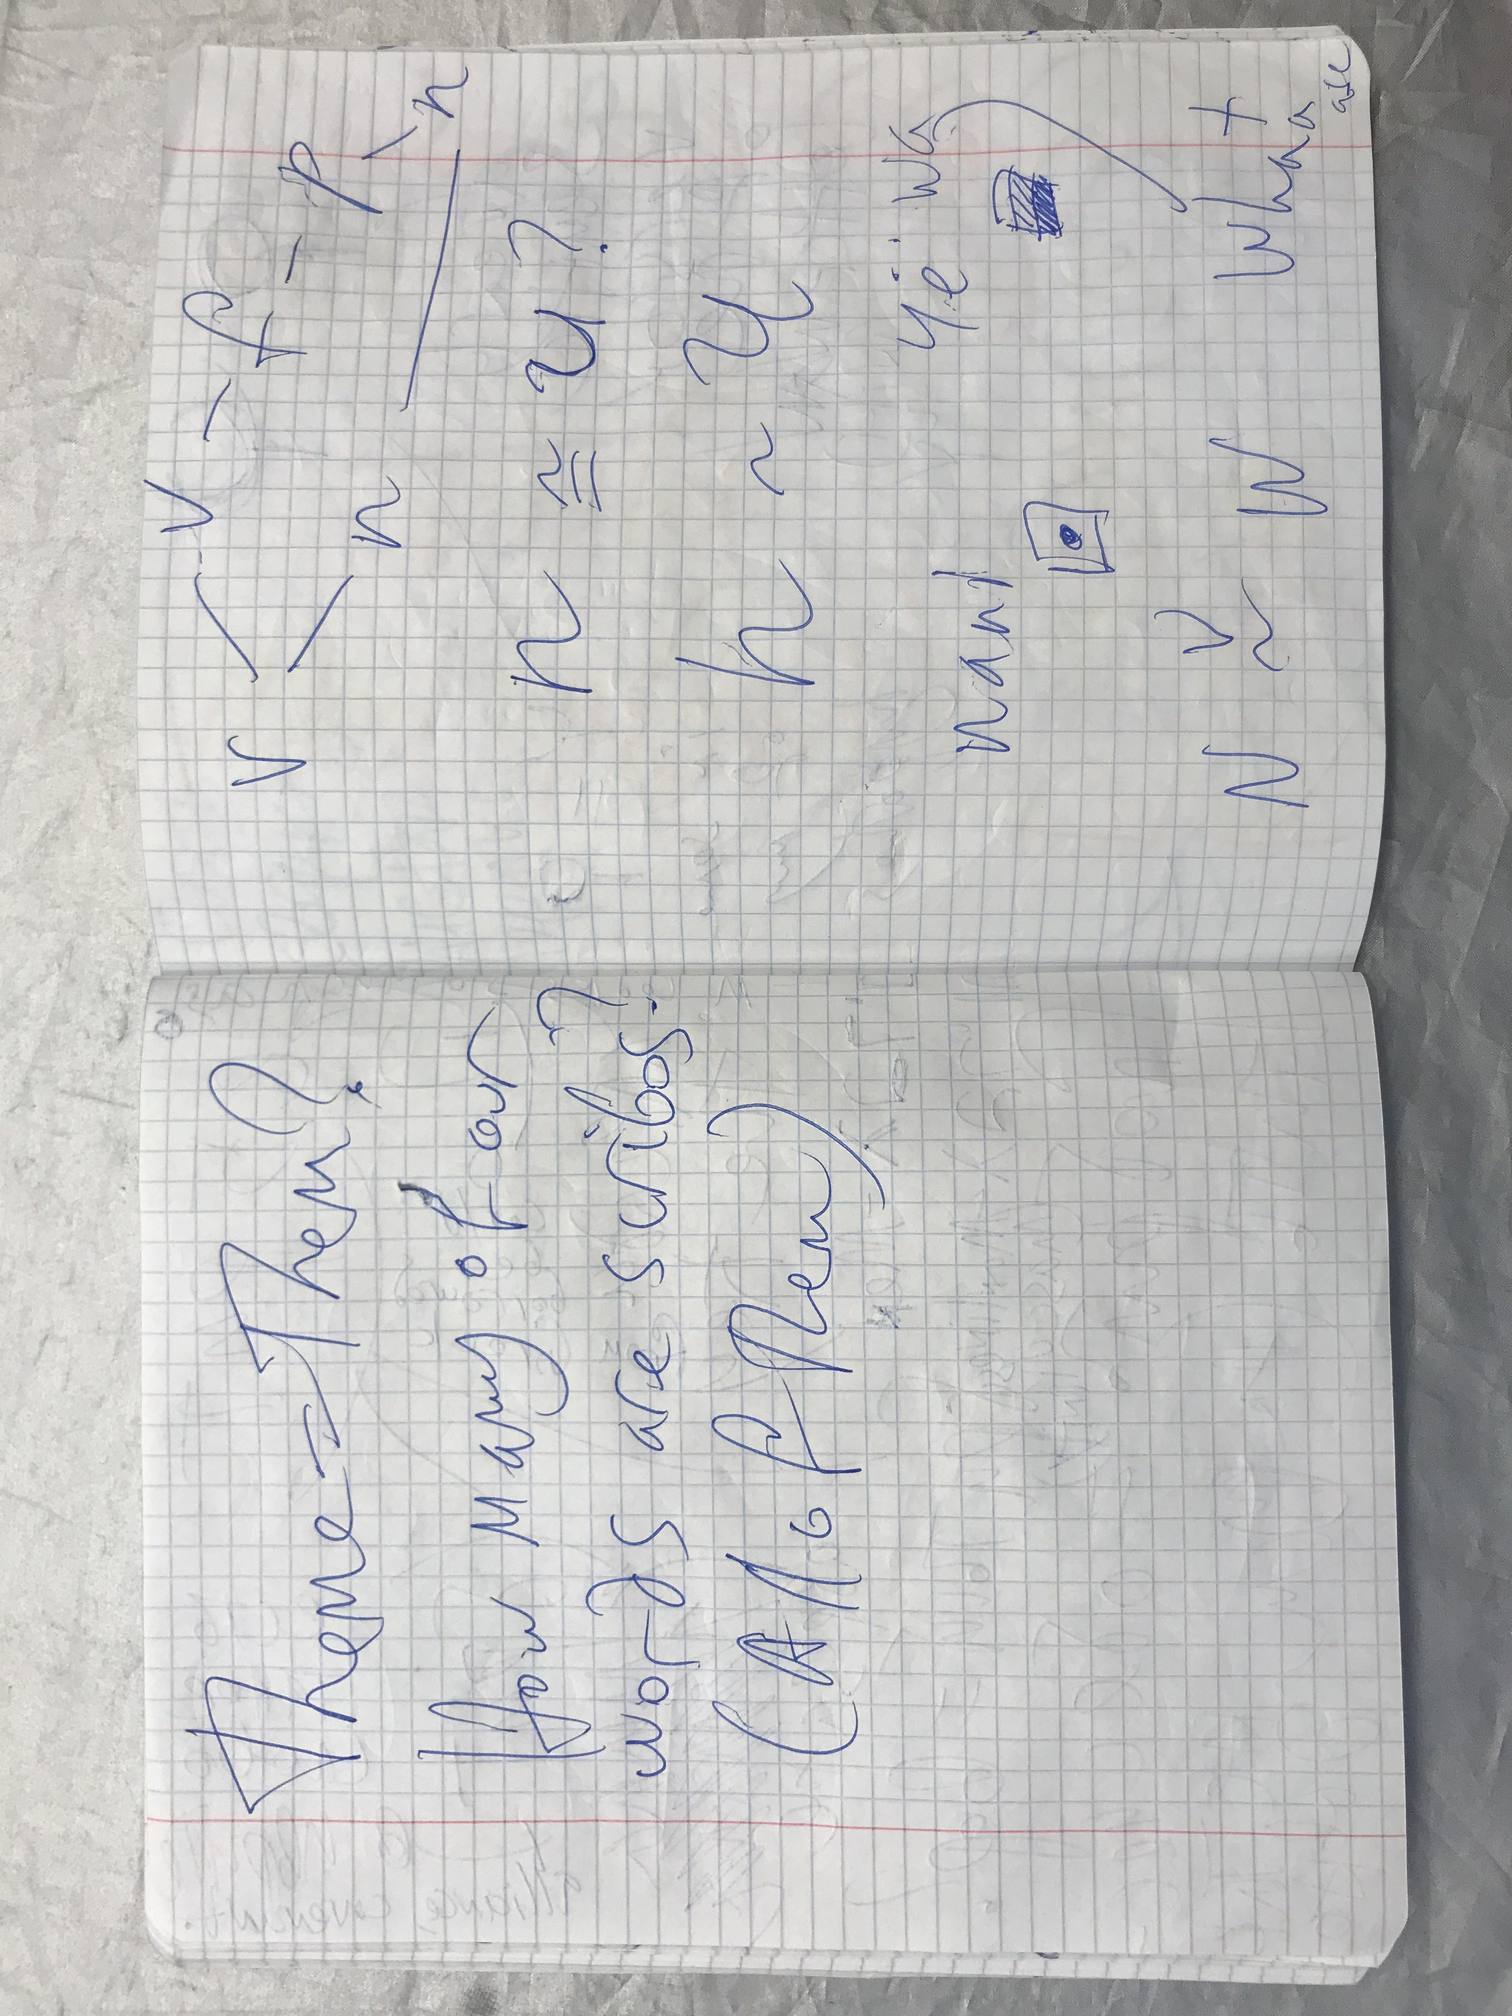 Theme => Them?
How many of our
words are scribos?
(All of Them)
v - v - f - p
n n
n ≅ u?
h ~ u
nant yë wa
N ~ W What
v